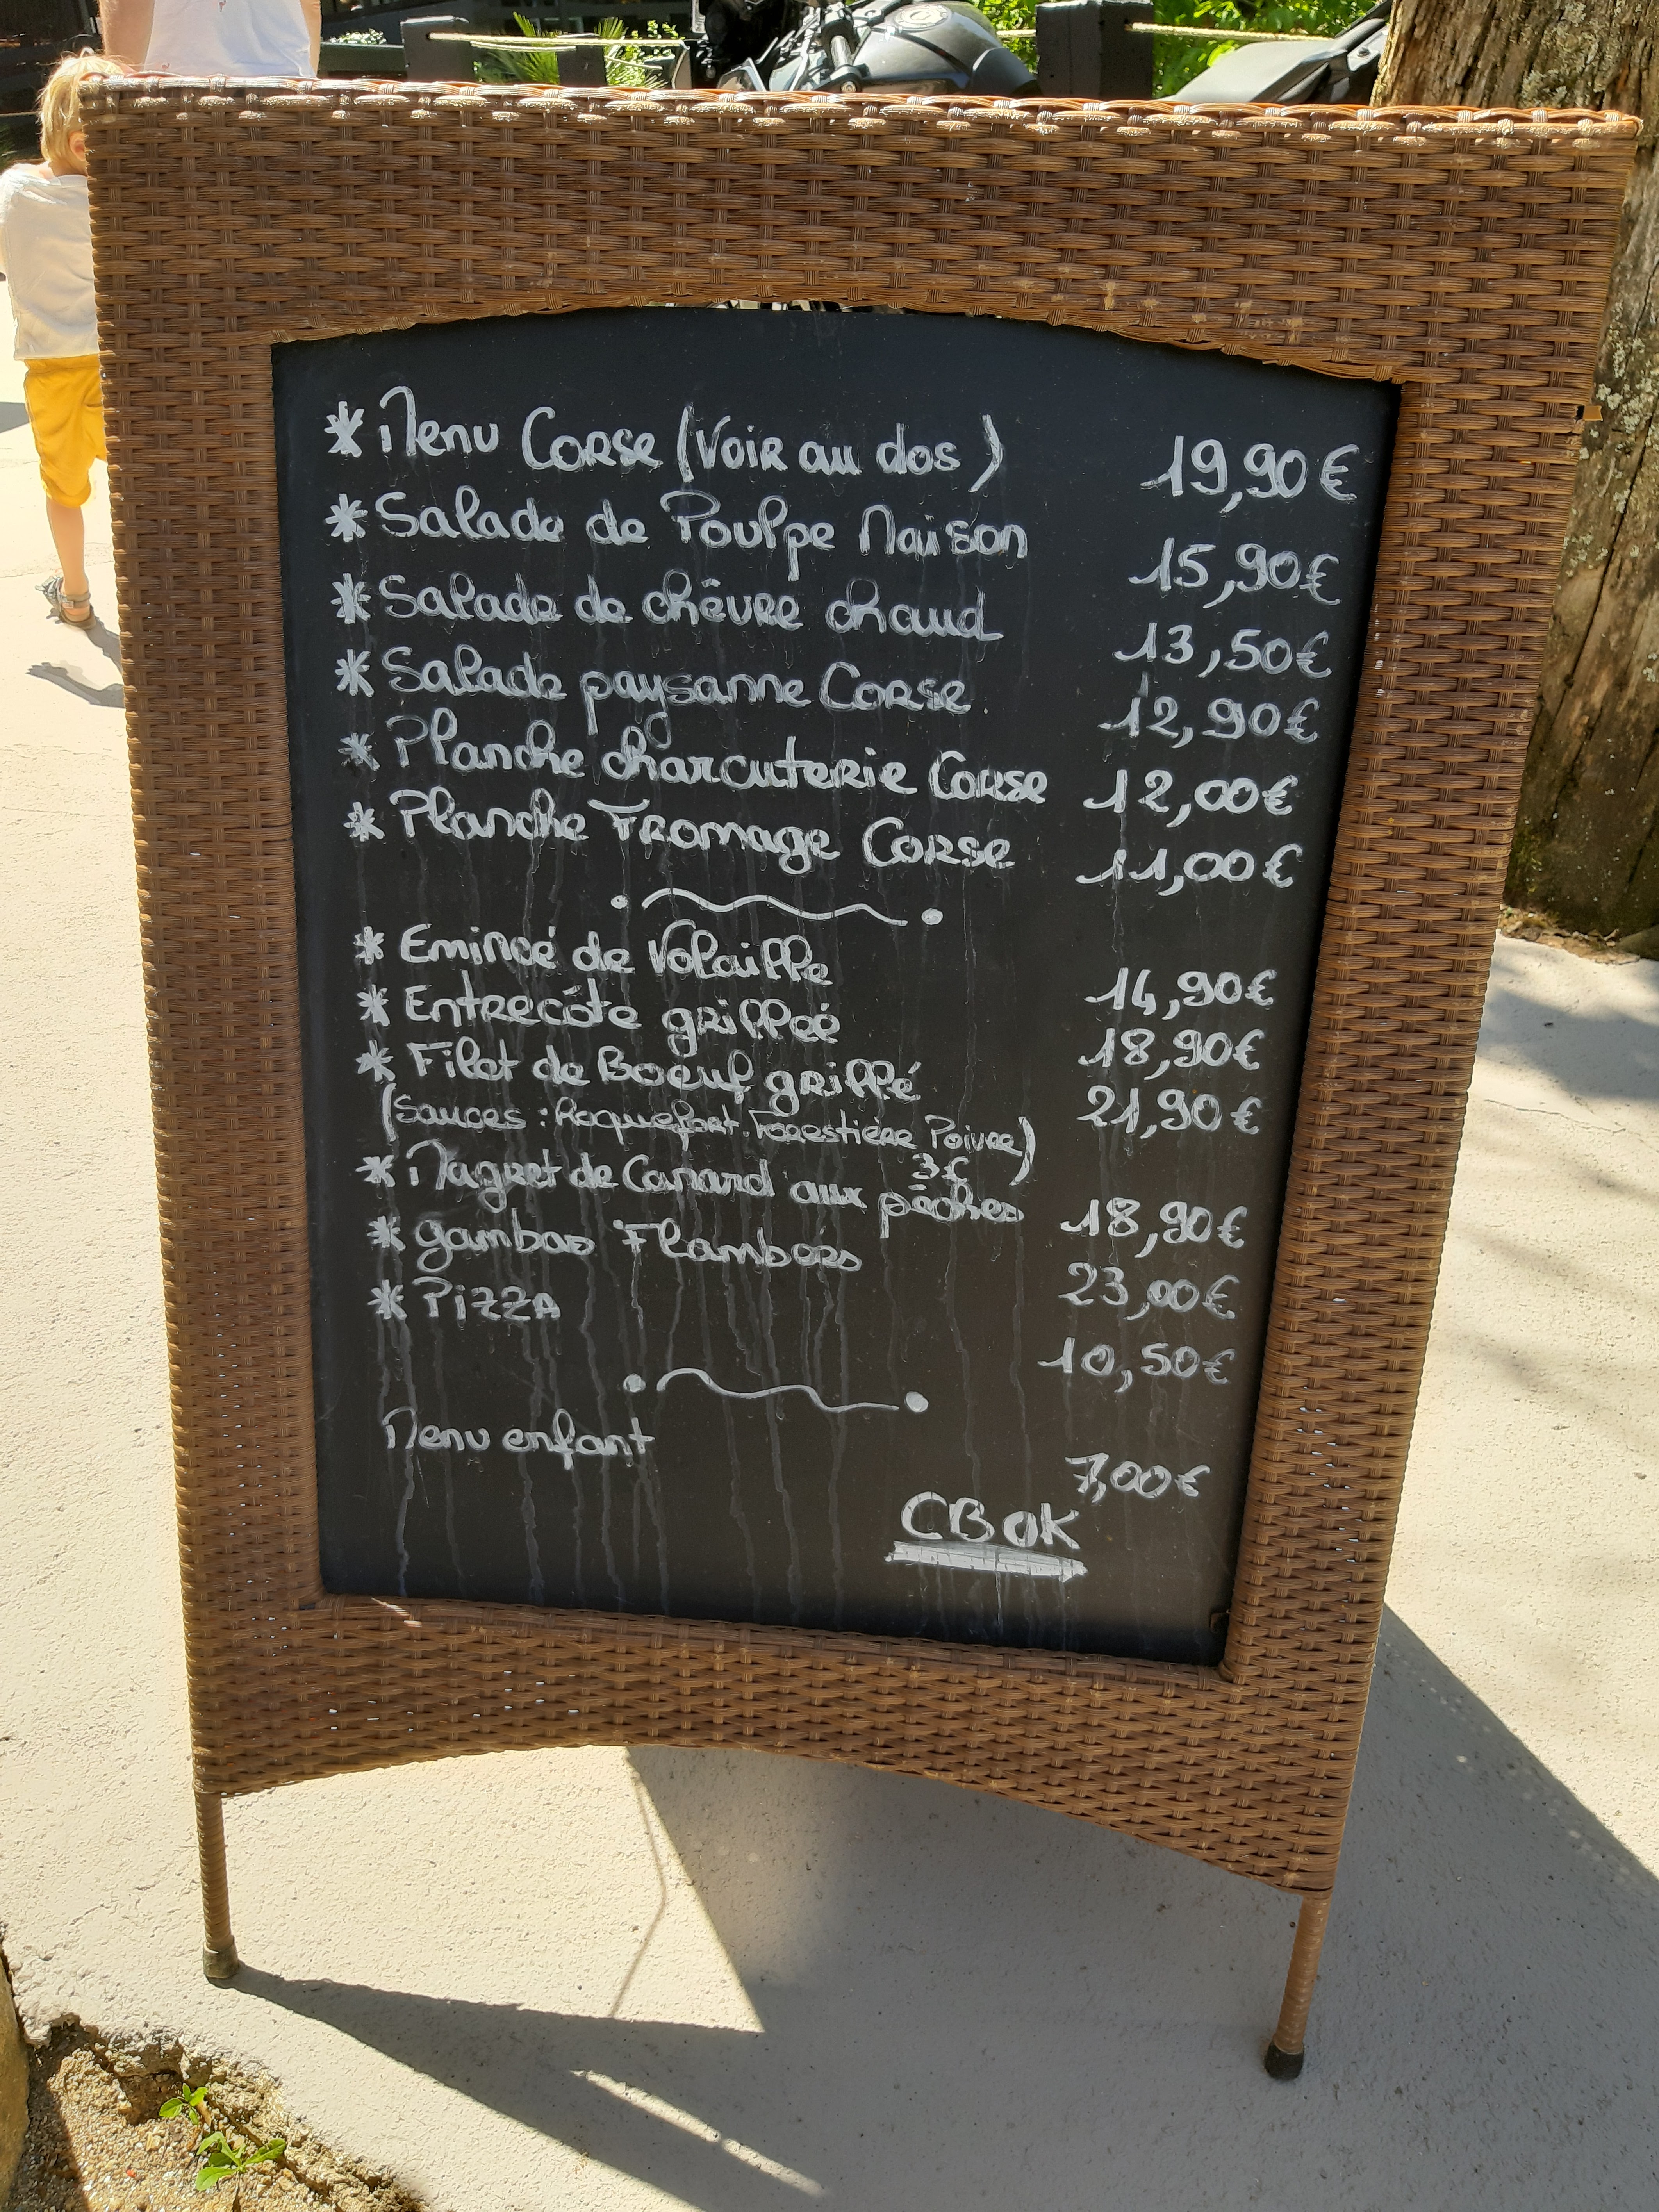 * Menu Corse (Voir au dos) 19,90€
* Salade de Poulpe Maison 15,90€
* Salade de chèvre chaud 13,50€
* Salade paysanne Corse 12,90€
* Planche charcuterie Corse 12,00€
* Planche Fromage Corse 11,00€
* Emincé de Volaille 14,90€
* Entrecôte grillée 18,90€
* Filet de Boeuf grillé 21,90€
(Sauces : Roquefort. Forestière Poivre)
3€
* Magret de Canard aux pêches 18,90€
* gambas Flambées 23,00€
* Pizza 10,50€
Menu enfant 7,00€
CB OK